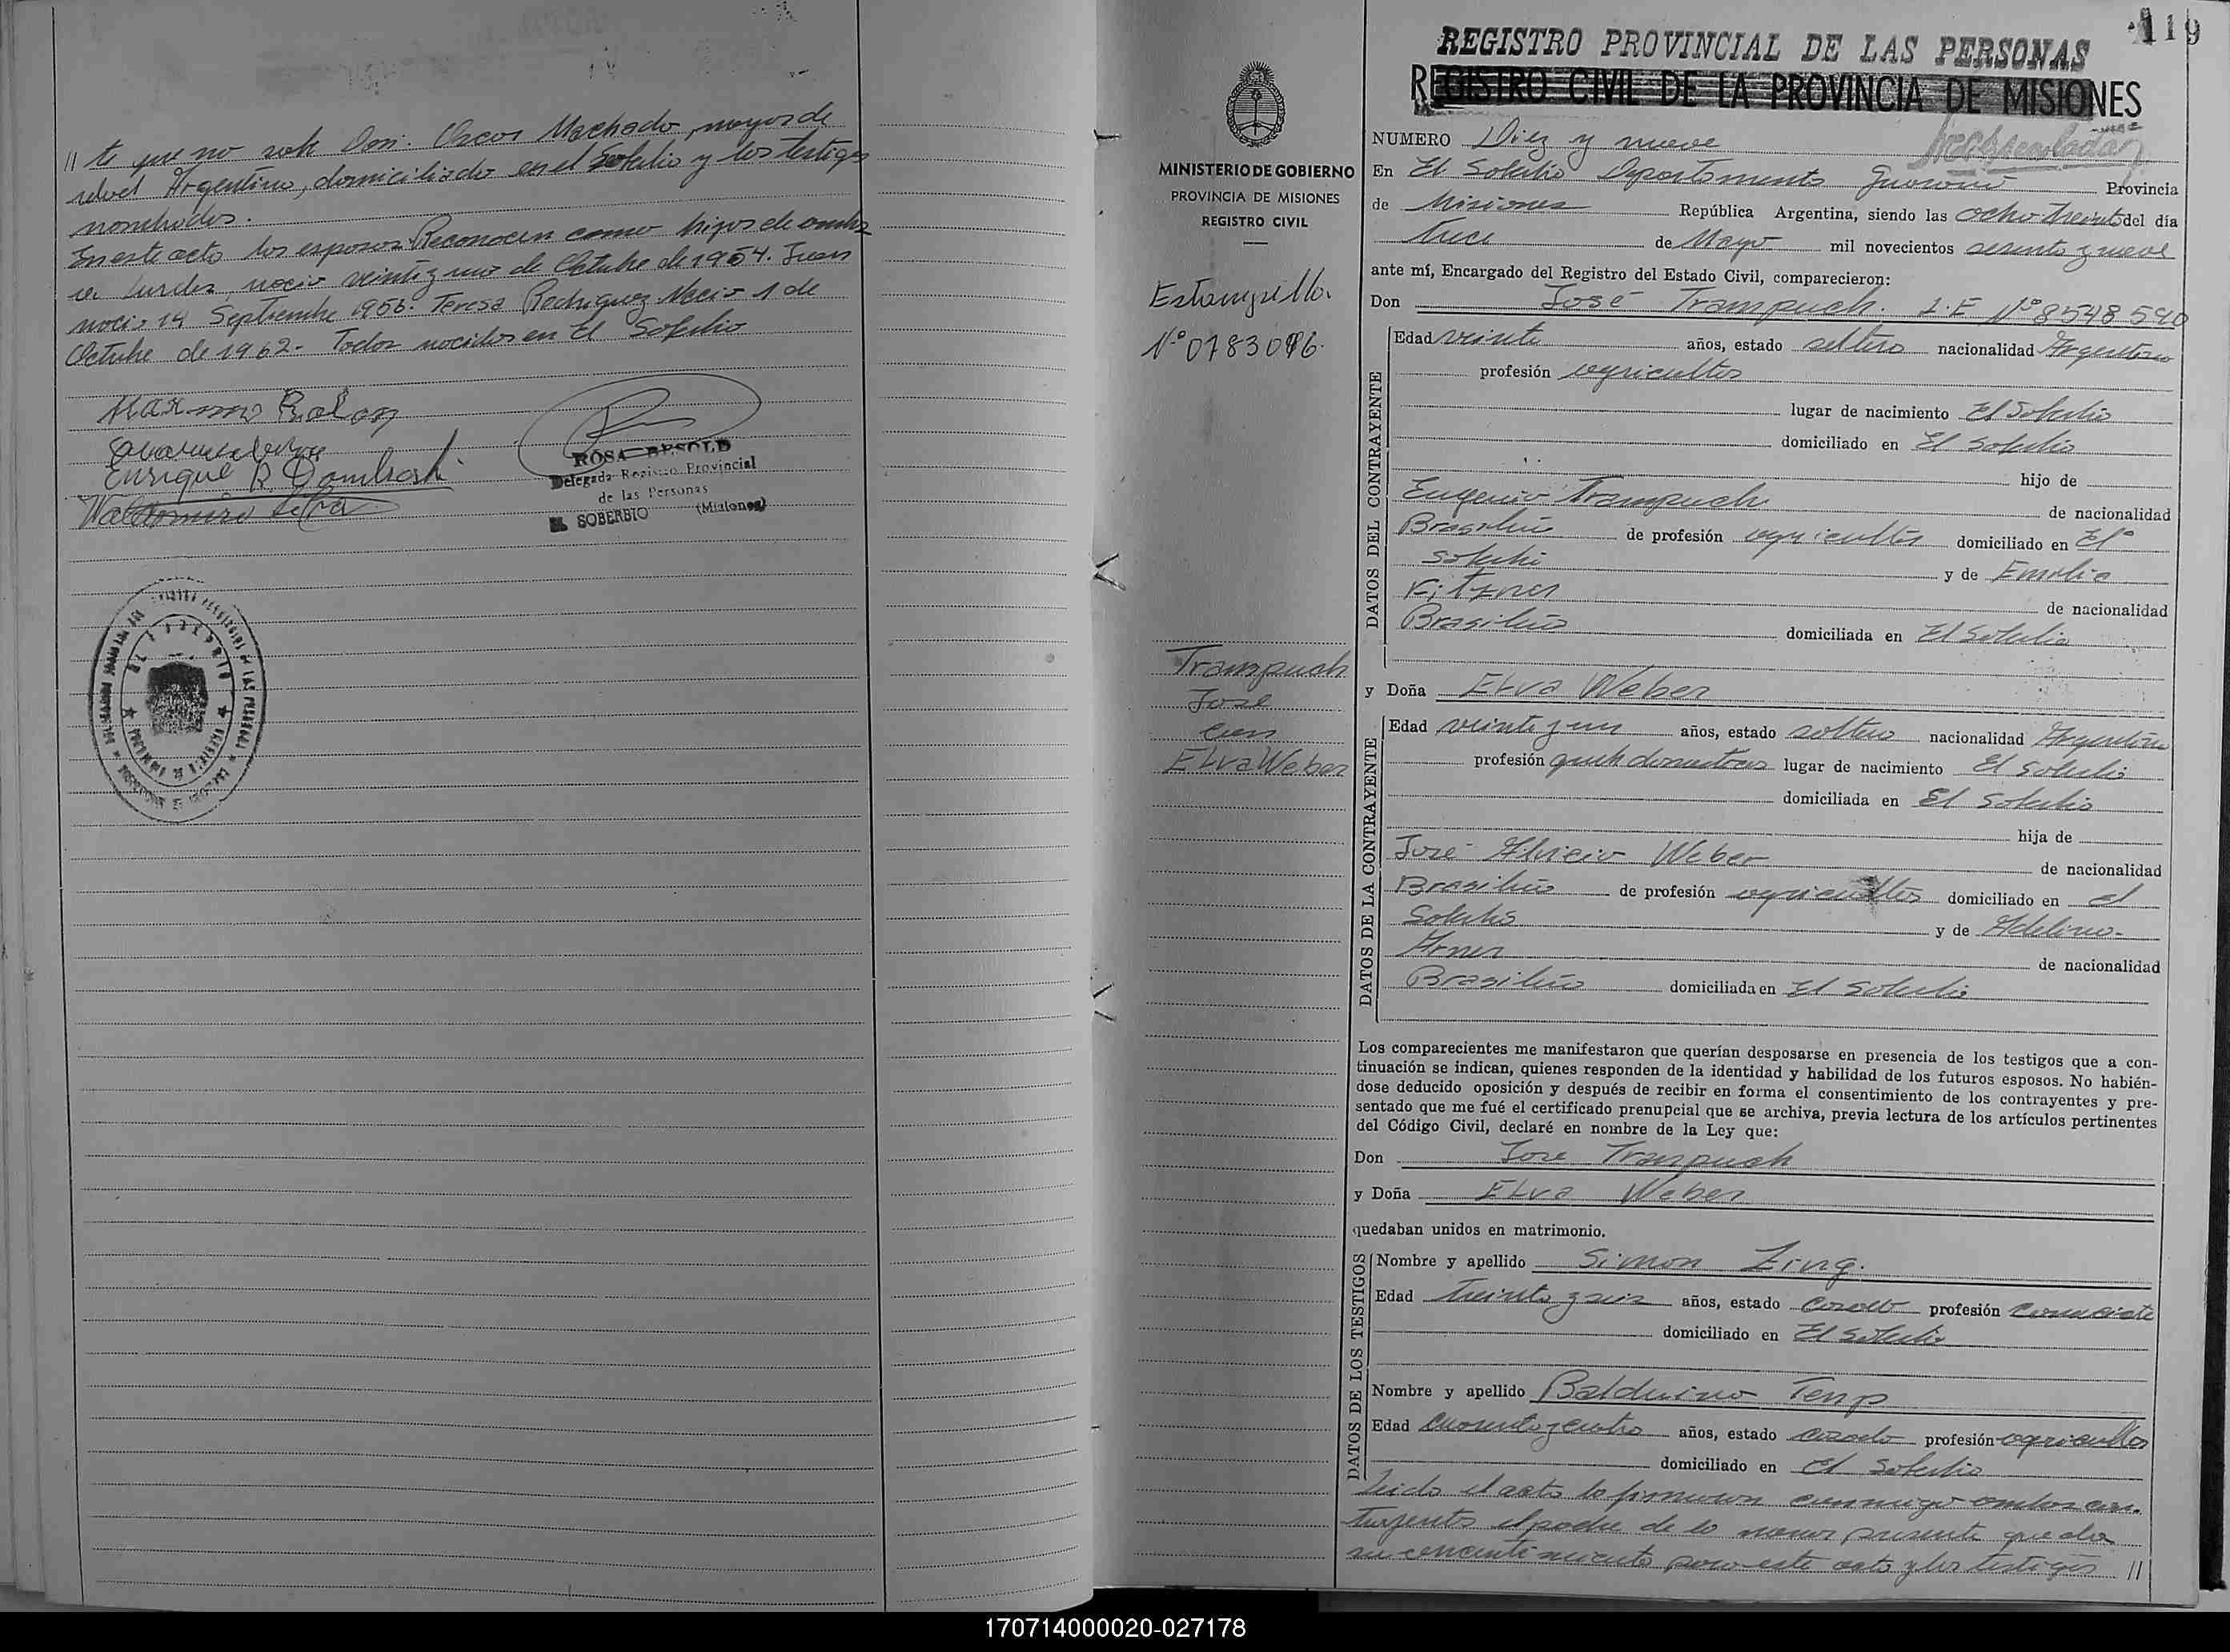 // te que no sabe Don. Oscar Machado, mayor de
edad Argentino, domiciliado en el Soberbio y los testigos
nombrados.
En este acto los esposos Reconocen como hijos de ambos
nació veinti y uno de Octubre de 1954. Juan
nació 14 Septiembre 1956. Teresa Rodriguez Nació 1 de
Octubre de 1962- Todos nacidos en El Soberbio
Enrique R. Dombroski
ROSA BESOLD
Delegada Registro Provincial
de las Personas
EL SOBERBIO (Misiones)
119
REGISTRO PROVINCIAL DE LAS PERSONAS
REGISTRO CIVIL DE LA PROVINCIA DE MISIONES
MINISTERIO DE GOBIERNO
PROVINCIA DE MISIONES
REGISTRO CIVIL
Estampilla
Nº 0783096.
Trampuch
José
con
Elva Weber
NUMERO Diez y nueve
En El Soberbio Departamento Guaraní Provincia
de Misiones República Argentina, siendo las ocho treinta del día
trece de Mayo mil novecientos sesenta y nueve
ante mí, Encargado del Registro del Estado Civil, comparecieron:
Don José Trampuch. L.E Nº 8548590
DATOS DEL CONTRAYENTE
Edad veinte años, estado soltero nacionalidad Argentino
profesión agricultor
lugar de nacimiento El Soberbio
domiciliado en El Soberbio
hijo de
Eugenio Trampuch de nacionalidad
Brasileño de profesión agricultor domiciliado en El
Soberbio y de Emilia
Fitzner de nacionalidad
Brasileña domiciliada en El Soberbio
y Doña Elva Weber
DATOS DE LA CONTRAYENTE
Edad veinti y un años, estado soltera nacionalidad Argentina
profesión queh domesticos lugar de nacimiento El Soberbio
domiciliada en El Soberbio
hija de
José Albicio Weber de nacionalidad
Brasileño de profesión agricultor domiciliado en el
Soberbio y de Adelina-
Arner de nacionalidad
Brasileña domiciliada en El Soberbio
Los comparecientes me manifestaron que querían desposarse en presencia de los testigos que a con-
tinuación se indican, quienes responden de la identidad y habilidad de los futuros esposos. No habién-
dose deducido oposición y después de recibir en forma el consentimiento de los contrayentes y pre-
sentado que me fué el certificado prenupcial que se archiva, previa lectura de los artículos pertinentes
del Código Civil, declaré en nombre de la Ley que:
Don José Trampuch
y Doña Elva Weber
quedaban unidos en matrimonio.
DATOS DE LOS TESTIGOS
Nombre y apellido Simon Zing.
Edad treinta y seis años, estado casado profesión comerciante
domiciliado en El Soberbio
Nombre y apellido Balduino Tenp
Edad cuarenta y cuatro años, estado casado profesión agricultor
domiciliado en El Soberbio
Leido el acta la firmaron conmigo ambos con-
trayentes el padre de la menor presente que da
su concentimiento para este acto y los testigos //
170714000020-027178